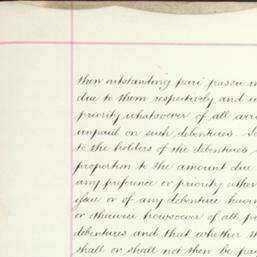 then outstanding pari passu
due to them respectively and
priority whatsoever of all
unpaid on such debentures.
to the holders of the debentures
proportion to the amount due
any preference or priority
of any debenture
or otherwise howsoever of all
debentures, and that whether
shall or shall not then be